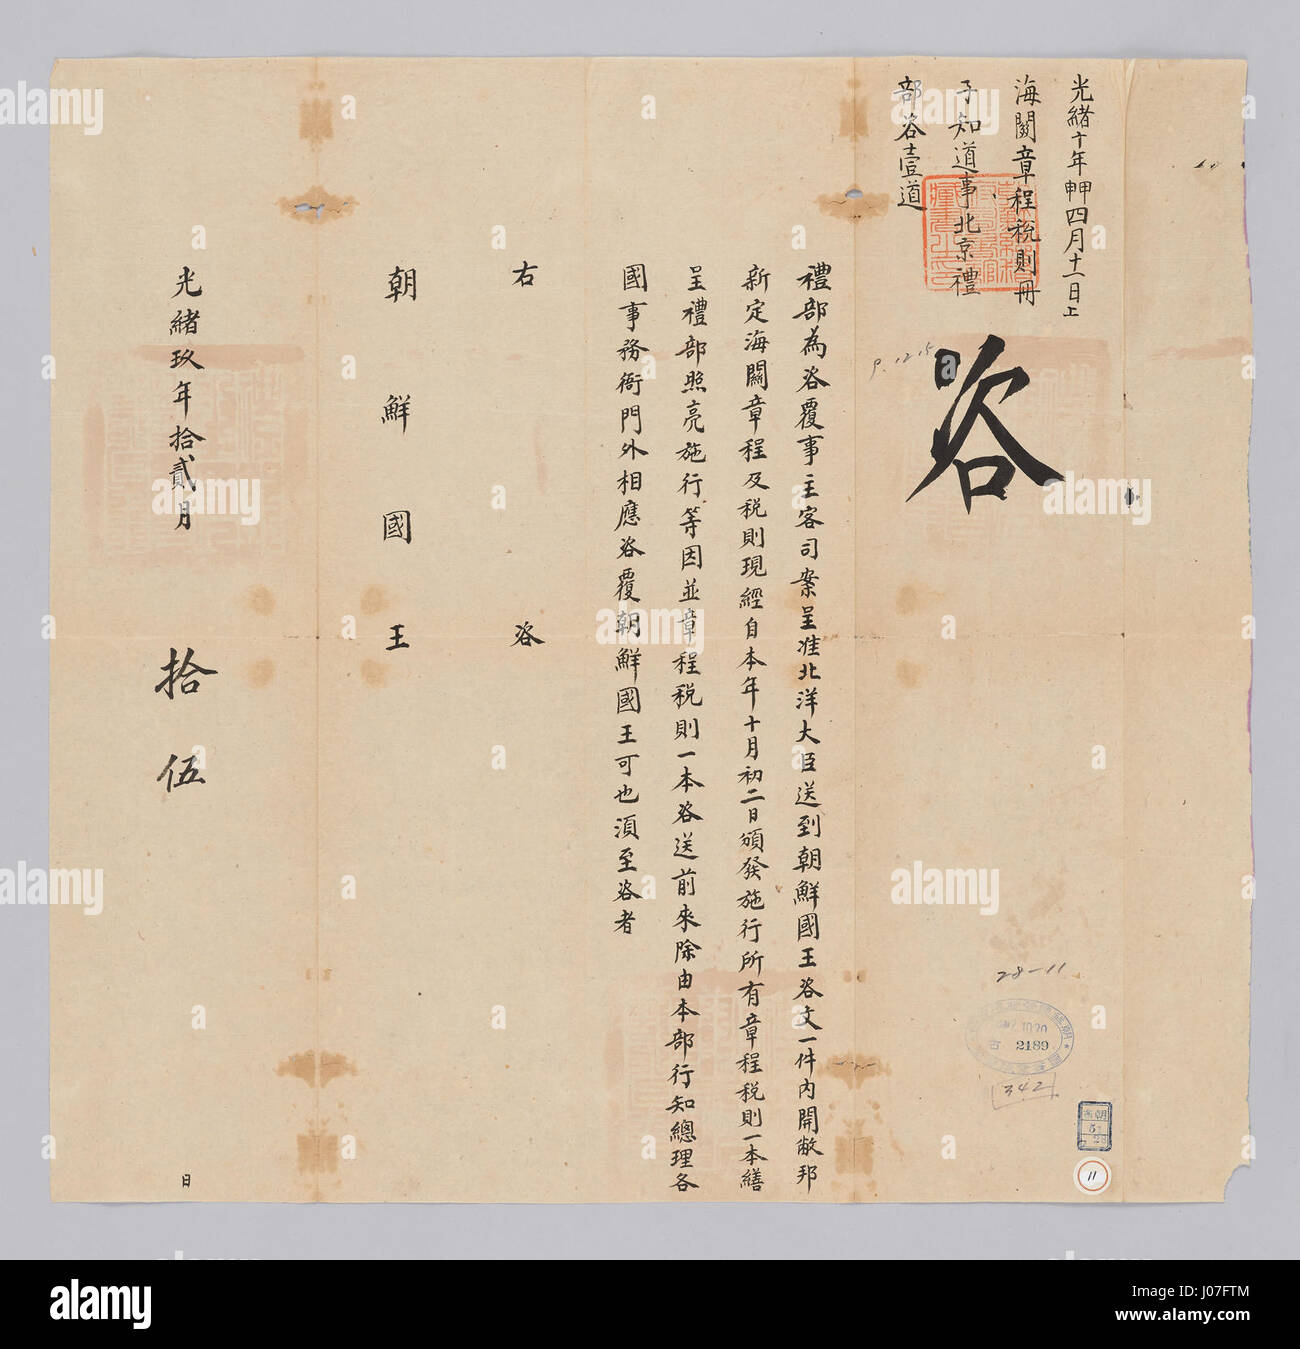 光緒十年甲申四月十一日上
海關章程稅則冊
子知道事北京禮
部咨壹道
咨
禮部為咨覆事主客司案呈准北洋大臣送到朝鮮國王咨文一件內開敝邦
新定海關章程及稅則現經自本年十月初二日頒發施行所有章程稅則一本繕
呈禮部照亮施行等因並章程稅則一本咨送前來除由本部行知總理各
國事務衙門外相應咨覆朝鮮國王可也須至咨者
右咨
朝鮮國王
光緒玖年拾貳月拾伍日
P. 1215
28-11
10.20
古 2189
342
朝
51
28
11
alamy
Image ID: J07FTM
www.alamy.com